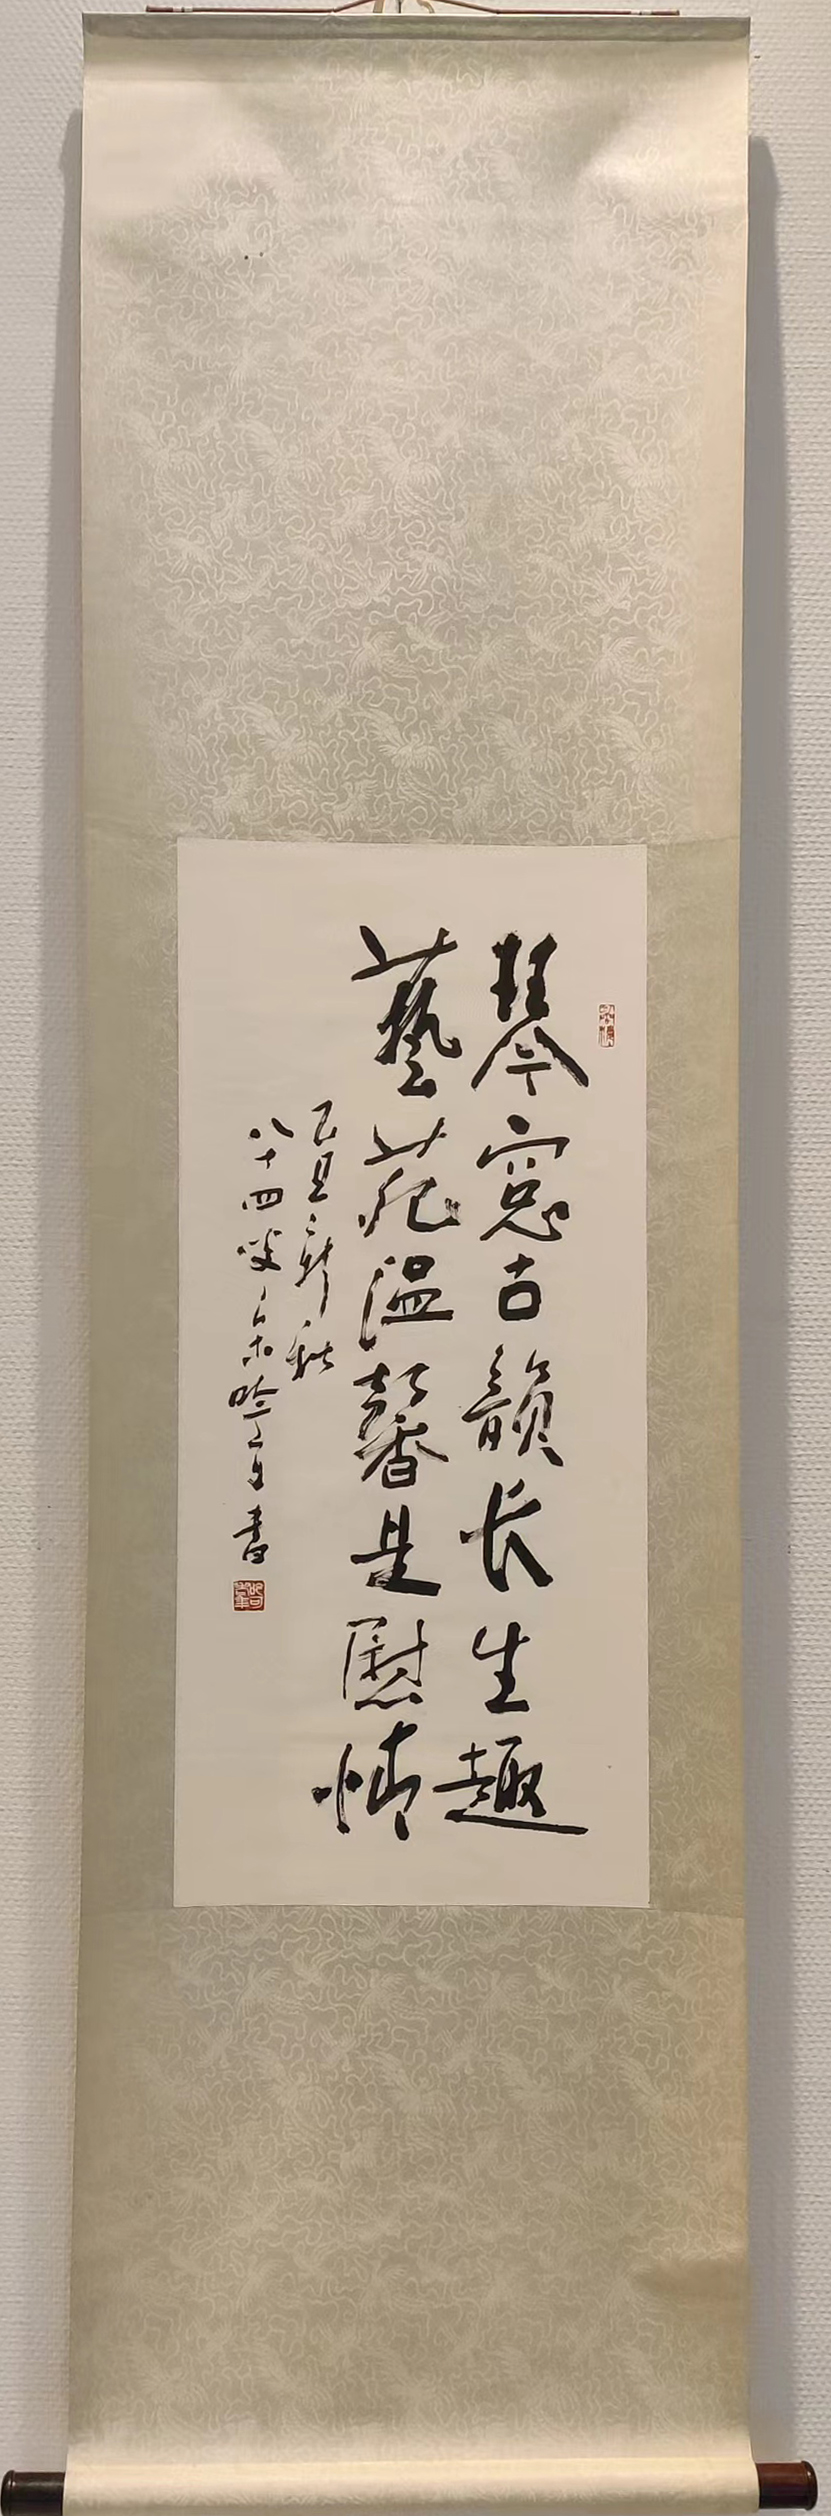 琴窓古韻长生趣
藝苑温馨是慰情
己丑新秋
八十四叟 書